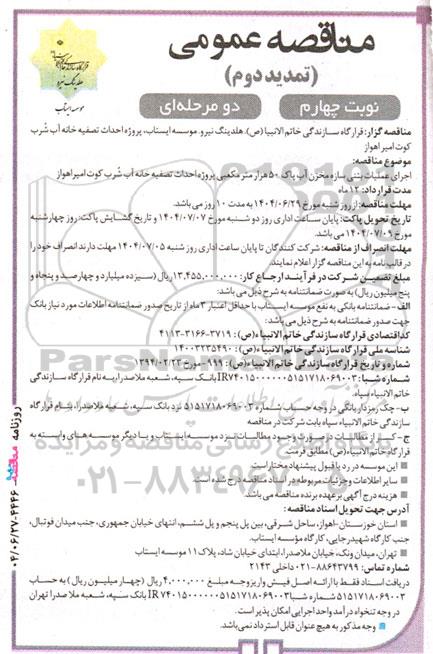 مناقصه عمومی
(تمدید دوم)
نوبت چهارم
دو مرحله‌ای
قرارگاه سازندگی خاتم الانبیاء
هلدینگ نیرو
موسسه ایستاب
مناقصه گزار: قرارگاه سازندگی خاتم الانبیا (ص)، هلدینگ نیرو، موسسه ایستاب، پروژه احداث تصفیه خانه آب شُرب
کوت امیر اهواز
موضوع مناقصه:
اجرای عملیات بتنی سازه مخزن آب پاک ۵۰ هزار متر مکعبی پروژه احداث تصفیه خانه آب شُرب کوت امیر اهواز
مدت قرارداد: ۱۲ ماه
مهلت مناقصه: از روز شنبه مورخ ۱۴۰۴/۰۶/۲۹ به مدت ۱۰ روز می باشد.
تاریخ تحویل پاکت: پایان ساعت اداری روز دو شنبه مورخ ۱۴۰۴/۰۷/۰۷ و تاریخ گشایش پاکت: روز چهارشنبه
مورخ ۱۴۰۴/۰۷/۰۹ می باشد.
مهلت انصراف از مناقصه: شرکت کنندگان تا پایان ساعت اداری روز شنبه ۱۴۰۴/۰۷/۰۵ مهلت دارند انصراف خود را
در قالب نامه به این مناقصه گزار اعلام نمایند.
مبلغ تضمین شرکت در فرآیند ارجاع کار: ۱۳,۴۵۵,۰۰۰,۰۰۰ ریال (سیزده میلیارد و چهارصد و پنجاه و
پنج میلیون ریال) به صورت ضمانتنامه به شرح ذیل می باشد:
الف - ضمانتنامه بانکی به نفع موسسه ایستاب با حداقل اعتبار ۳ ماه از تاریخ صدور ضمانتنامه اطلاعات مورد نیاز بانک
جهت صدور ضمانتنامه به شرح ذیل می باشد:
کد اقتصادی قرارگاه سازندگی خاتم الانبیاء (ص): ۳۷۱۹-۳۱۶۶-۴۱۱۳
شناسه ملی قرارگاه سازندگی خاتم الانبیاء (ص): ۱۴۰۰۳۲۳۵۴۹۰
شماره و تاریخ قرارگاه سازندگی خاتم الانبیاء (ص): ۹۹۹ - مورخ ۱۳۹۴/۰۲/۲۳
شماره شبا: IR۷۴۰۱۵۰۰۰۰۰۰۵۱۵۱۷۱۸۰۶۹۰۰۳ بانک سپه، شعبه ملاصدرا، به نام قرارگاه سازندگی
خاتم الانبیاء سپاه.
ب- چک رمزدار بانکی در وجه حساب شماره ۵۱۵۱۷۱۸۰۶۹۰۰۳ نزد بانک سپه، شعبه ملاصدرا، بنام قرارگاه
سازندگی خاتم الانبیاء سپاه بابت شرکت در مناقصه
ج- کسر از مطالبات در صورت وجود مطالبات نزد موسسه ایستاب و یا دیگر موسسه های وابسته به
قرارگاه خاتم الانبیاء (ص) مطابق فرمت.
این موسسه در رد یا قبول پیشنهاد مختار است.
سایر اطلاعات و جزئیات مربوطه در اسناد مناقصه درج شده است.
هزینه درج آگهی برعهده برنده مناقصه می باشد.
آدرس جهت تحویل اسناد مناقصه:
استان خوزستان - اهواز، ساحل شرقی، بین پل پنجم و پل ششم، انتهای خیابان جمهوری، جنب میدان فوتبال،
جنب کارگاه شهید رجایی، کارگاه مؤسسه ایستاب.
تهران، میدان ونک، خیابان ملاصدرا، ابتدای خیابان شاد، پلاک ۱۱ موسسه ایستاب
شماره تماس: ۸۸۶۴۳۷۹۹-۰۲۱ داخلی ۲۱۴۳
دریافت اسناد فقط با ارائه اصل فیش واریز وجه مبلغ ۴,۰۰۰,۰۰۰ ریال (چهار میلیون ریال) به حساب
۵۱۵۱۷۱۸۰۶۹۰۰۳ شماره شبا IR۷۴۰۱۵۰۰۰۰۰۰۵۱۵۱۷۱۸۰۶۹۰۰۳ بانک سپه، شعبه ملاصدرا تهران
در وجه تنخواه درآمد واحد اجرایی امکان پذیر است.
وجه مذکور به هیچ عنوان قابل استرداد نمی باشد.
روزنامه مناقصه ۴۴۴۶-۰۴/۰۶/۲۷